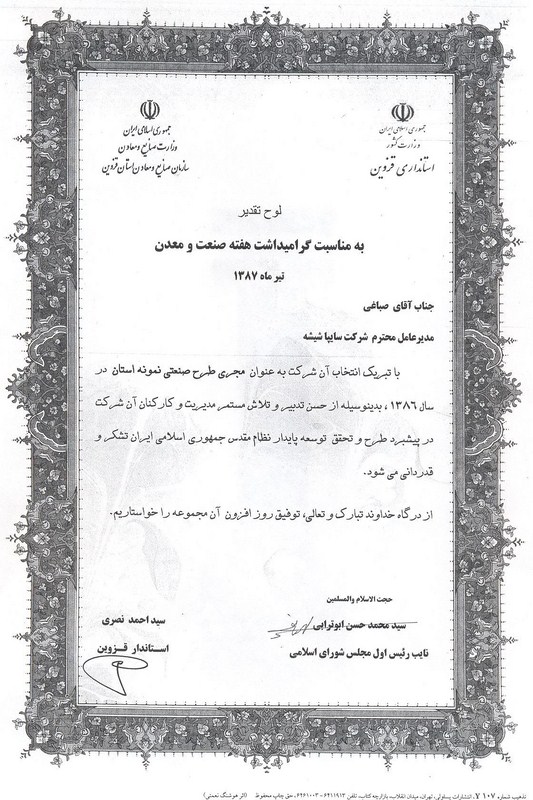 جمهوری اسلامی ایران
وزارت کشور
استانداری قزوین
جمهوری اسلامی ایران
وزارت صنایع و معادن
سازمان صنایع و معادن استان قزوین
لوح تقدیر
به مناسبت گرامیداشت هفته صنعت و معدن
تیر ماه ۱۳۸۷
جناب آقای صباغی
مدیرعامل محترم شرکت سایپا شیشه
با تبریک انتخاب آن شرکت به عنوان مجری طرح صنعتی نمونه استان در
سال ۱۳۸۶، بدینوسیله از حسن تدبیر و تلاش مستمر مدیریت و کارکنان آن شرکت
در پیشبرد طرح و تحقق توسعه پایدار نظام مقدس جمهوری اسلامی ایران تشکر و
قدردانی می شود.
از درگاه خداوند تبارک و تعالی، توفیق روز افزون آن مجموعه را خواستاریم.
حجت الاسلام والمسلمین
سید محمد حسن ابوترابی
نایب رئیس اول مجلس شورای اسلامی
سید احمد نصری
استاندار قزوین
تذهیب شماره ۱۰۷ Y، انتشارات یساولی، تهران، میدان انقلاب، بازارچه کتاب، تلفن ۶۴۱۱۹۱۳ - ۶۴۶۱۰۰۳، حق چاپ محفوظ (اثر هوشنگ نعمتی)